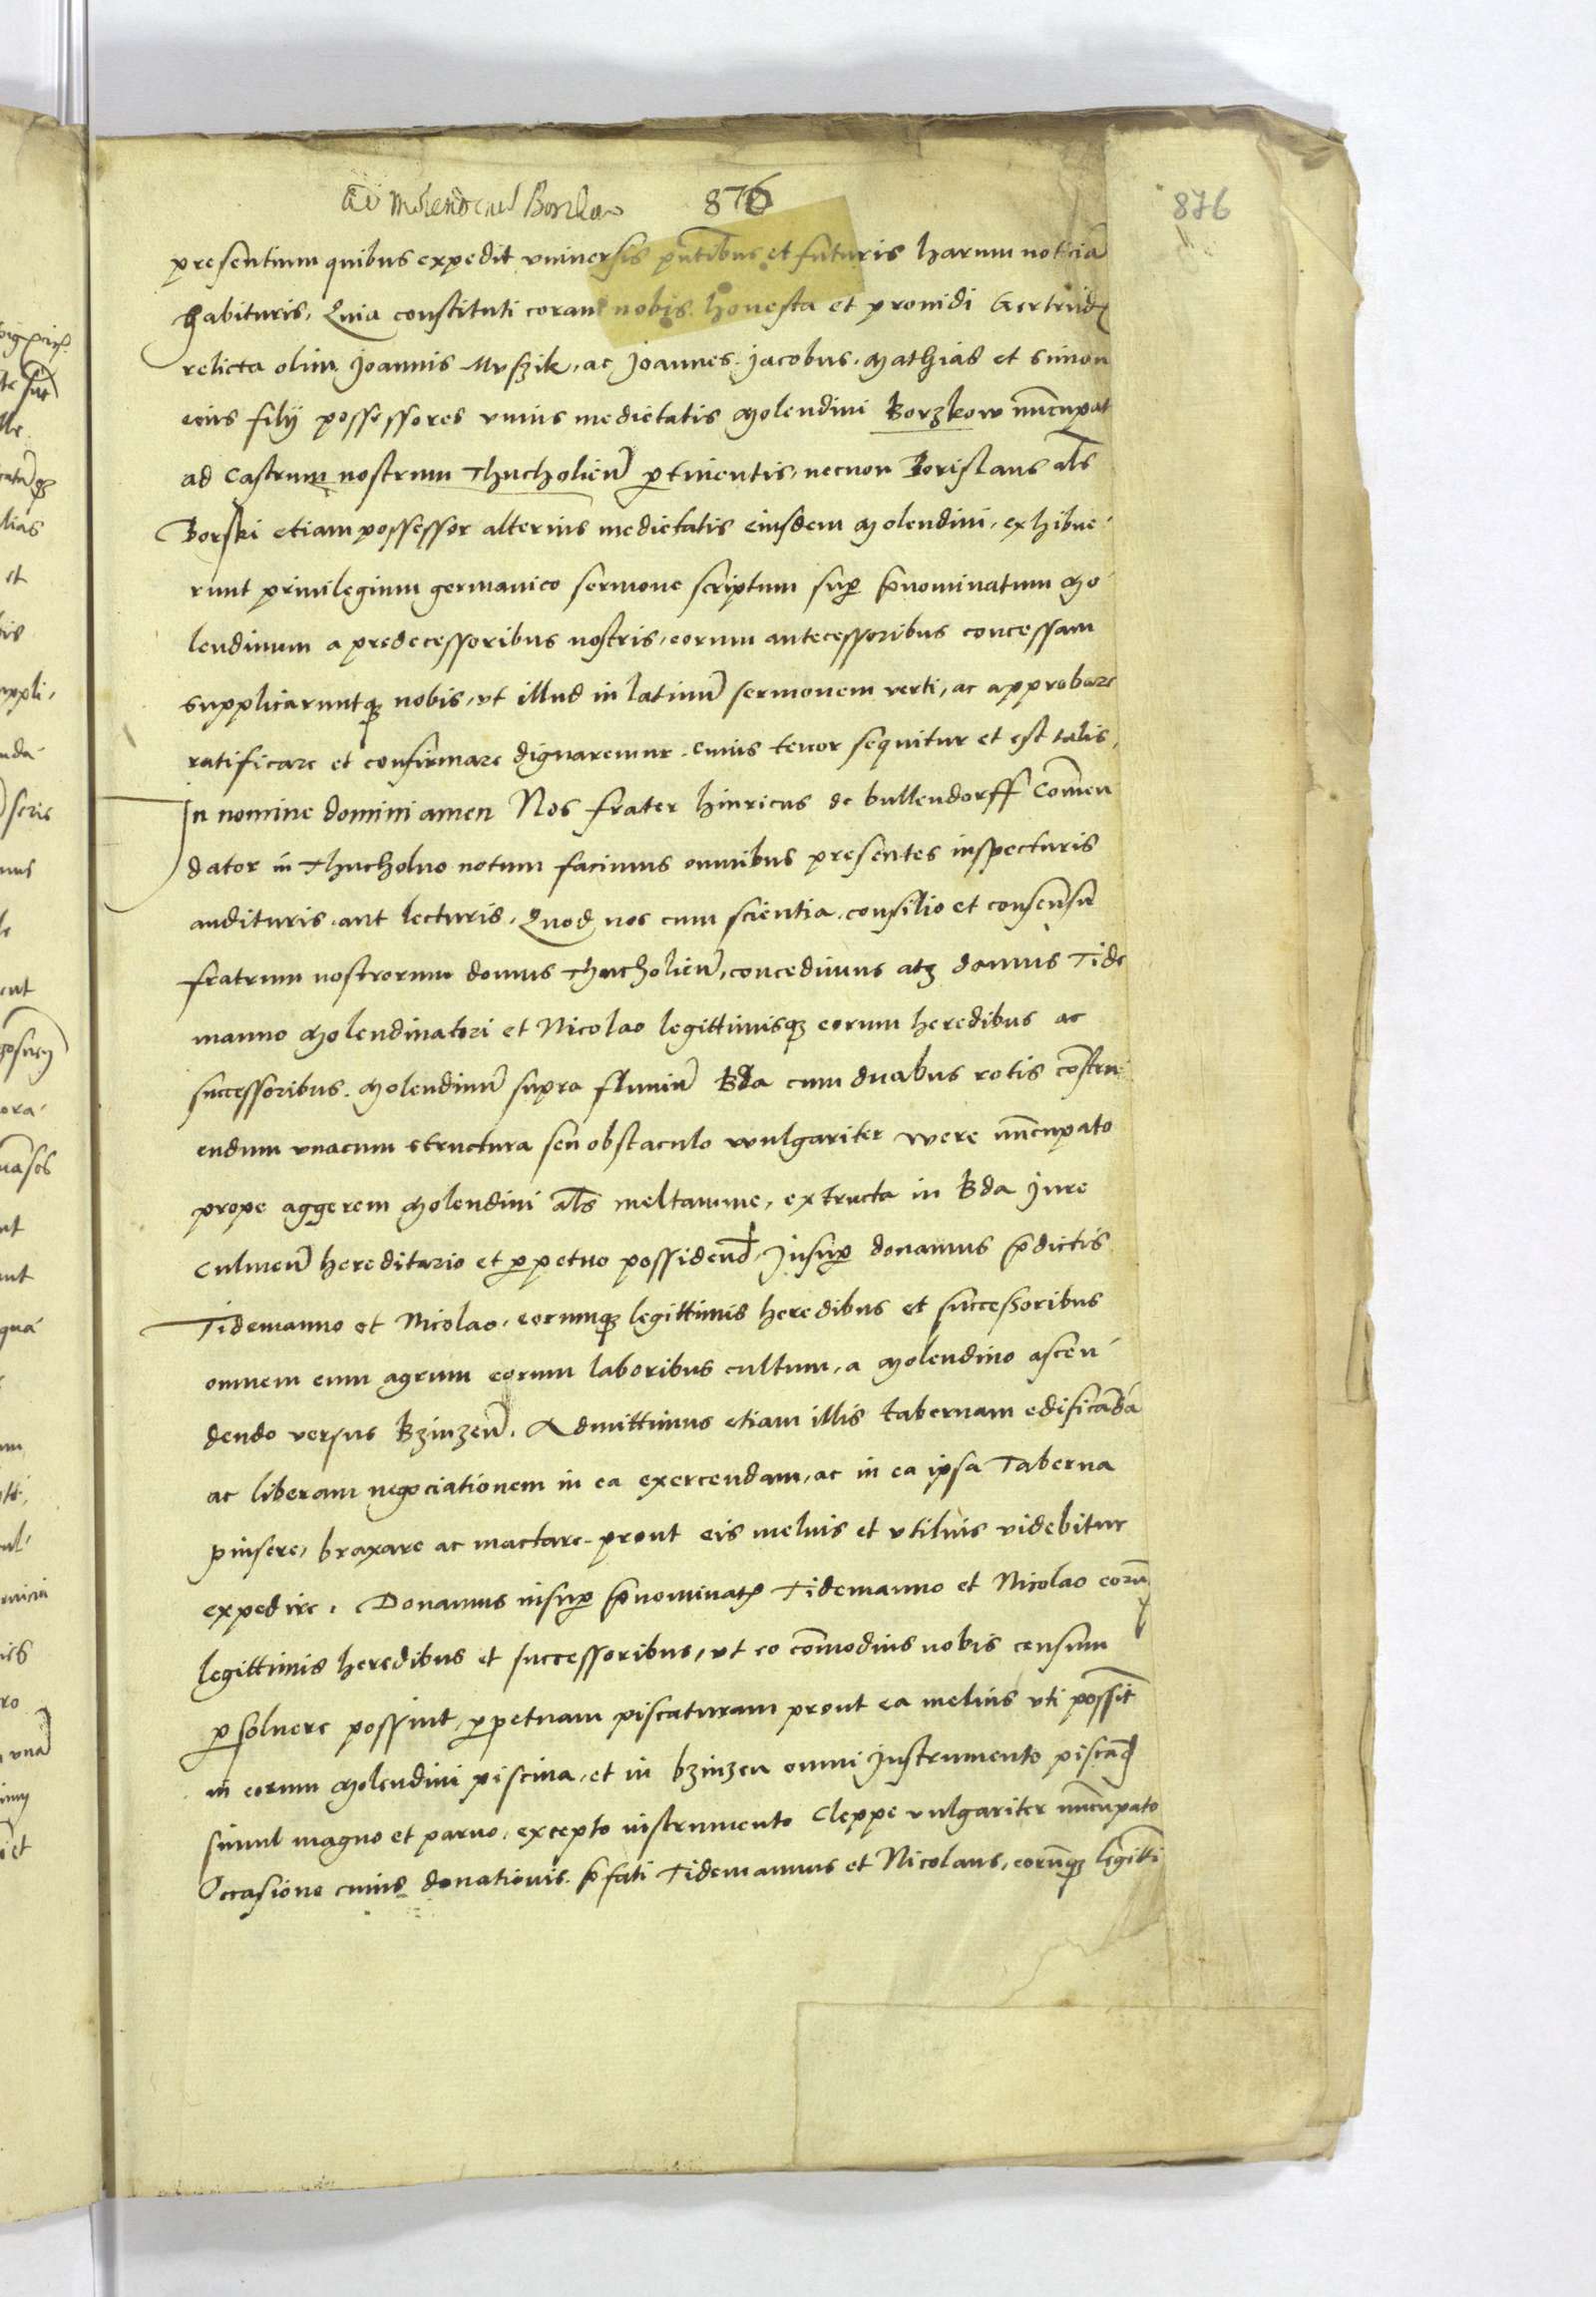 876
876
presentium quibus expedit vniversis pñtibus et futuris harum noticiā
habituris, Quia constituti coram nobis honesta et prouidi Gertrudꝭ
relicta olim Joannis Muszik, ac Joannes Jacobus, Mathias et Simon
eius filij possessores vnius medietatis Molendini Borzkow nūcupat
ad Castrum nostrum Thucholien̄ ꝑtinentis, necnon Borislaus al̄s
Borski etiam possessor alterius medietatis eiusdem Molendini, exhibue-
runt priuilegium germanico sermone scriptum suꝑ p̄nominatum Mo-
lendinum a predecessoribus nostris, eorum antecessoribus concessam
supplicaruntqꝫ nobis, vt illud in latinū sermonem verti, ac approbare
ratificare et confirmare dignaremur. cuius tenor sequitur et est talis,
In nomine domini amen Nos frater Hinricus de bullendorff Com̄en
dator in Thucholuo notum facimus omnibus presentes inspecturis
audituris, aut lecturis, Quod nos cum scientia, consilio et consensu
fratrum nostrorum domus Thucholien̄, concedimus atqꝫ damus Tide
manno Molendinatori et Nicolao legittimisqꝫ eorum heredibus ac
successoribus. Molendinū supra fluuiū Bda cum duabus rotis cōstru
endum vnacum structura seu obstaculo wulgariter were nūcupato
prope aggerem Molendini al̄s meltamme, extructa in Bda Jure
culmen̄ hereditario et ꝑpetuo possidend̄, Insuꝑ donamus p̄dictis
Tidemanno et Nicolao, eorumqꝫ legittimis heredibus et successoribus
omnem eum agrum eorum laboribus cultum, a Molendino ascen-
dendo versus Bzinzen̄. Admittimus etiam illis tabernam edificādā
ac liberam negociationem in ea exercendam, ac in ea ipsa Taberna
pinsere, braxare ac mactare prout eis melius et vtilius videbitur
expedire. Donamus insuꝑ p̄nominatꝭ Tidemanno et Nicolao eorūqꝫ
legittimis heredibus et successoribus, vt eo com̄odius nobis censum
ꝑsoluere possint, ꝑpetuam piscaturam prout ea melius vti possint
in eorum Molendini piscina, et in bzinzen omni Instrumento piscādi
simul magno et paruo, excepto instrumento Cleppe vulgariter nūcupato
Occasione cuius donationis. p̄fati Tidemannus et Nicolaus, eorūqꝫ legitti